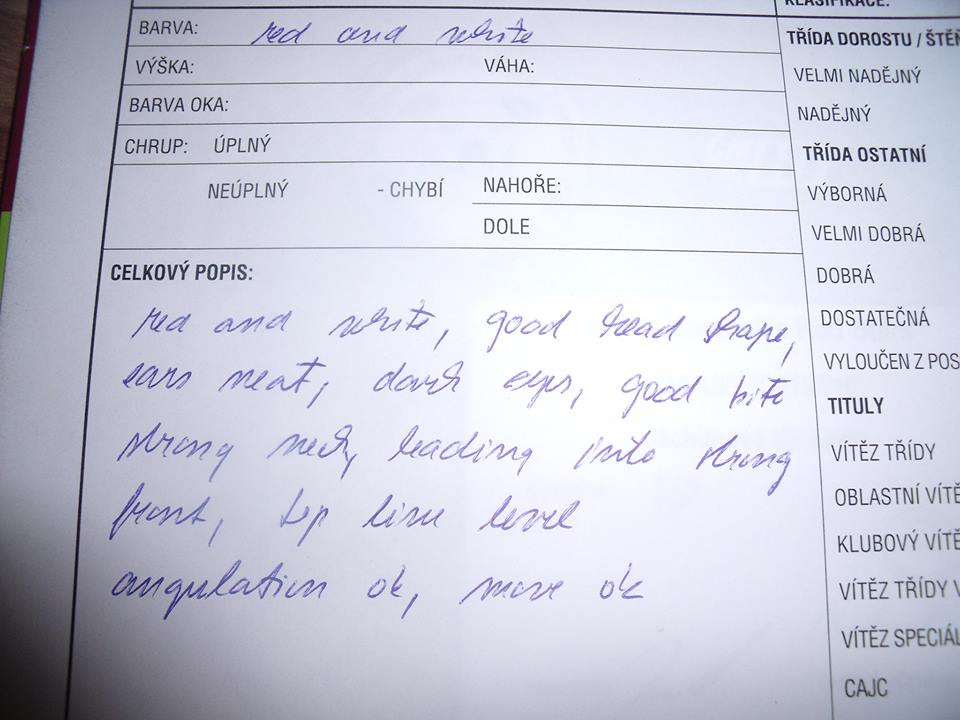 KLASIFIKACE:
BARVA: red and white
TŘÍDA DOROSTU / ŠTĚŇ
VÝŠKA: VÁHA:
VELMI NADĚJNÝ
BARVA OKA:
NADĚJNÝ
CHRUP: ÚPLNÝ
TŘÍDA OSTATNÍ
NEÚPLNÝ - CHYBÍ NAHOŘE:
VÝBORNÁ
DOLE
VELMI DOBRÁ
CELKOVÝ POPIS:
DOBRÁ
red and white, good head shape,
DOSTATEČNÁ
VYLOUČEN Z POS
ears neat, dark eyes, good bite
TITULY
strong neck, leading into strong
VÍTĚZ TŘÍDY
OBLASTNÍ VÍTĚ
front, top line level
KLUBOVÝ VÍTĚ
angulation ok, move ok
VÍTĚZ TŘÍDY V
VÍTĚZ SPECIÁL
CAJC